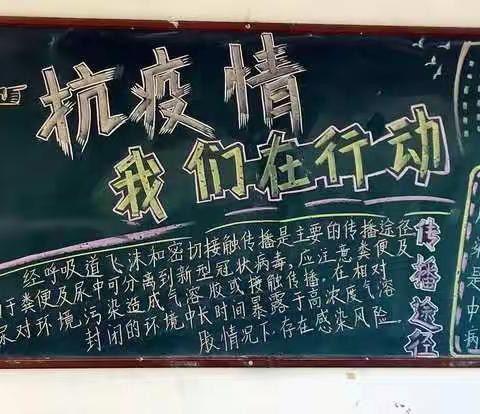 抗疫情
我们在行动
经呼吸道飞沫和密切接触传播是主要的传播途径
于粪便及尿中可分离到新型冠状病毒，应注意粪便及
尿对环境污染造成气溶胶或接触传播，在相对
封闭的环境中长时间暴露于高浓度气溶
胶情况下存在感染风险.
传播途径
是
中
病